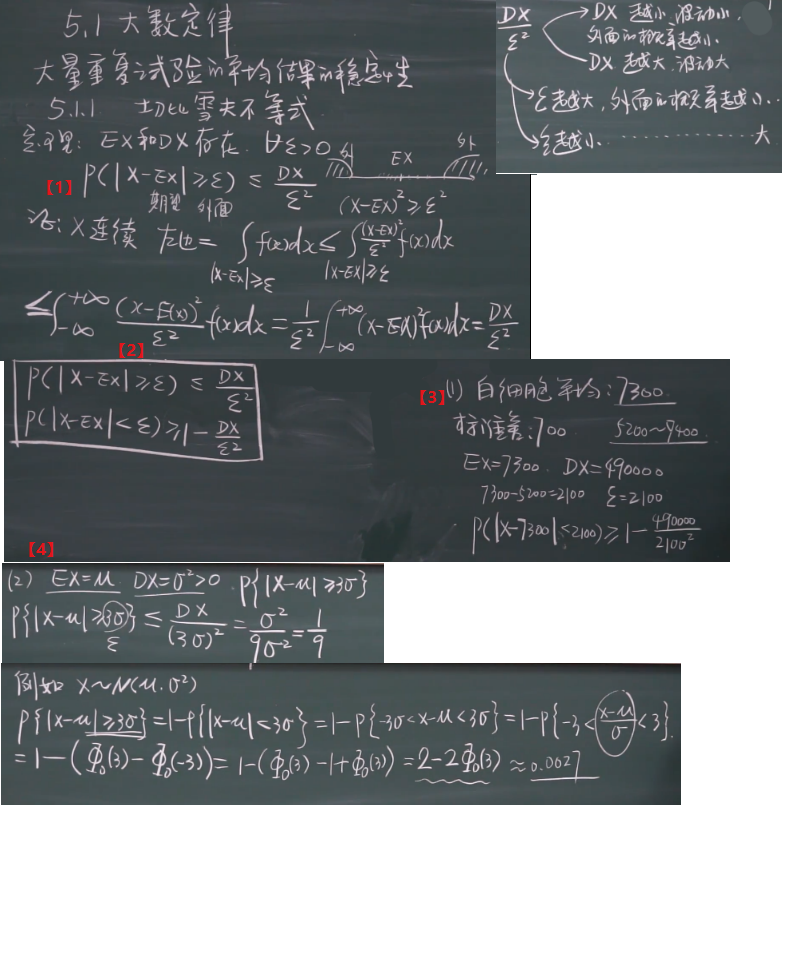 5.1 大数定律
大量重复试验的平均结果的稳定性
5.1.1 切比雪夫不等式
定理: EX和DX存在. ∀ε>0 外 EX 外
【1】 P(|X-EX|≥ε) ≤ DX/ε²
期望 外面 (X-EX)²≥ε²
证: X连续 左边= ∫_{|X-EX|≥ε} f(x)dx ≤ ∫_{|X-EX|≥ε} (x-EX)²/ε² f(x)dx
≤ ∫_{-∞}^{+∞} (x-E(x))²/ε² f(x)dx = 1/ε² ∫_{-∞}^{+∞} (x-EX)² f(x)dx = DX/ε²
【2】
DX/ε² → DX 越小, 波动小,
外面的概率越小.
DX 越大, 波动大
ε越大, 外面的概率越小..
ε越小. ............... 大
P(|X-EX|≥ε) ≤ DX/ε²
P(|X-EX|<ε) ≥ 1- DX/ε²
【3】 (1) 白细胞平均: 7300.
标准差: 700 5200~9400
EX=7300. DX=490000
7300-5200=2100 ε=2100
P(|X-7300|≤2100) ≥ 1- 490000/2100²
【4】
(2) EX=μ. DX=σ²>0 P{|X-μ|≥3σ}
P{|X-μ|≥3σ} ≤ DX/(3σ)² = σ²/9σ² = 1/9
ε
例如 X~N(μ.σ²)
P{|X-μ|≥3σ}=1-P{|X-μ|<3σ}=1-P{-3σ<X-μ<3σ}=1-P{-3<(X-μ)/σ<3}.
=1-(Φ₀(3)-Φ₀(-3))=1-(Φ₀(3)-1+Φ₀(3))=2-2Φ₀(3)≈0.0027